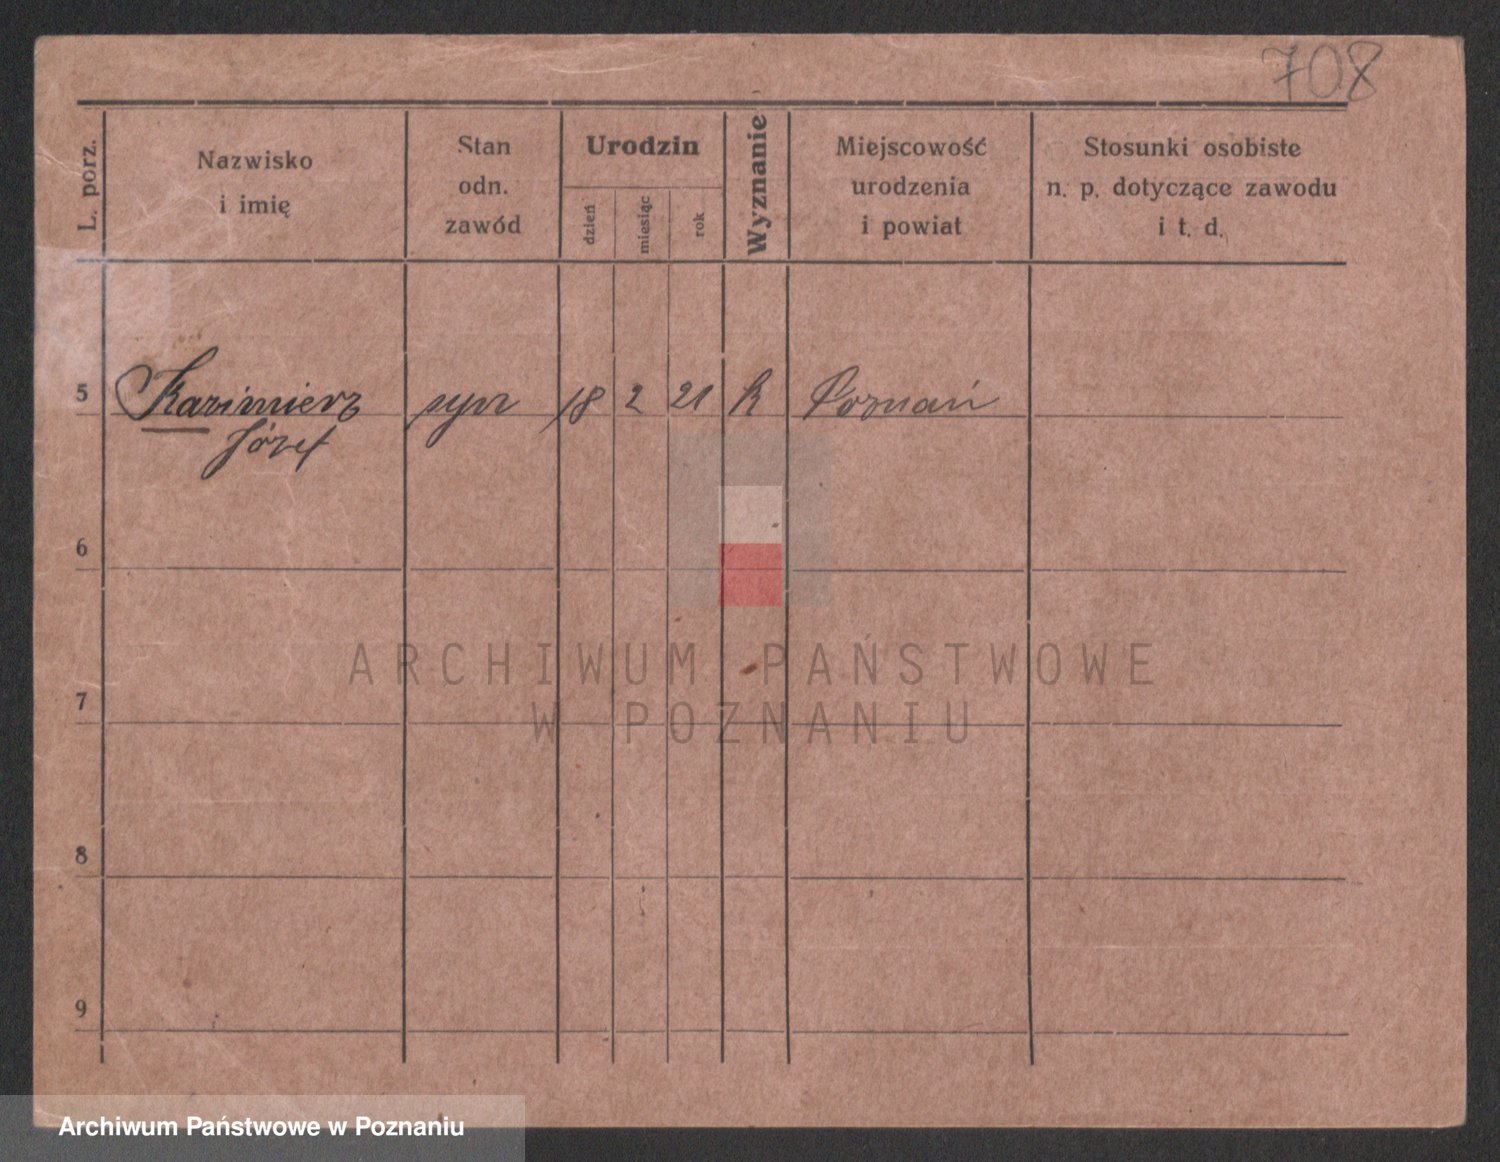 708
L. porz.
Nazwisko
i imię
Stan
odn.
zawód
Urodzin
dzień
miesiąc
rok
Wyznanie
Miejscowość
urodzenia
i powiat
Stosunki osobiste
n. p. dotyczące zawodu
i t. d.
5 Kazimierz syn 18 2 21 k Poznań
Józef
6
7
8
9
ARCHIWUM PAŃSTWOWE
W POZNANIU
Archiwum Państwowe w Poznaniu